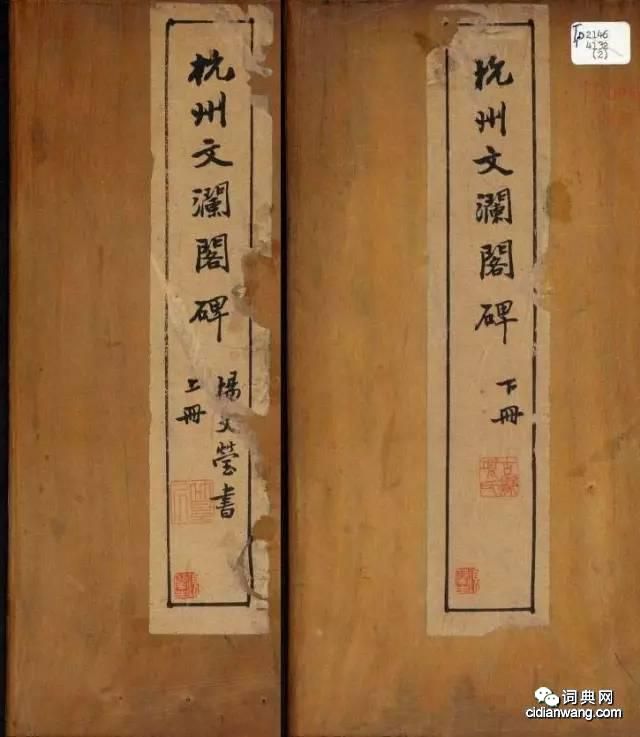 杭州文瀾閣碑
上冊
楊文瑩書
杭州文瀾閣碑
下冊
2146
4132
(2)
词典网
cidianwang.com